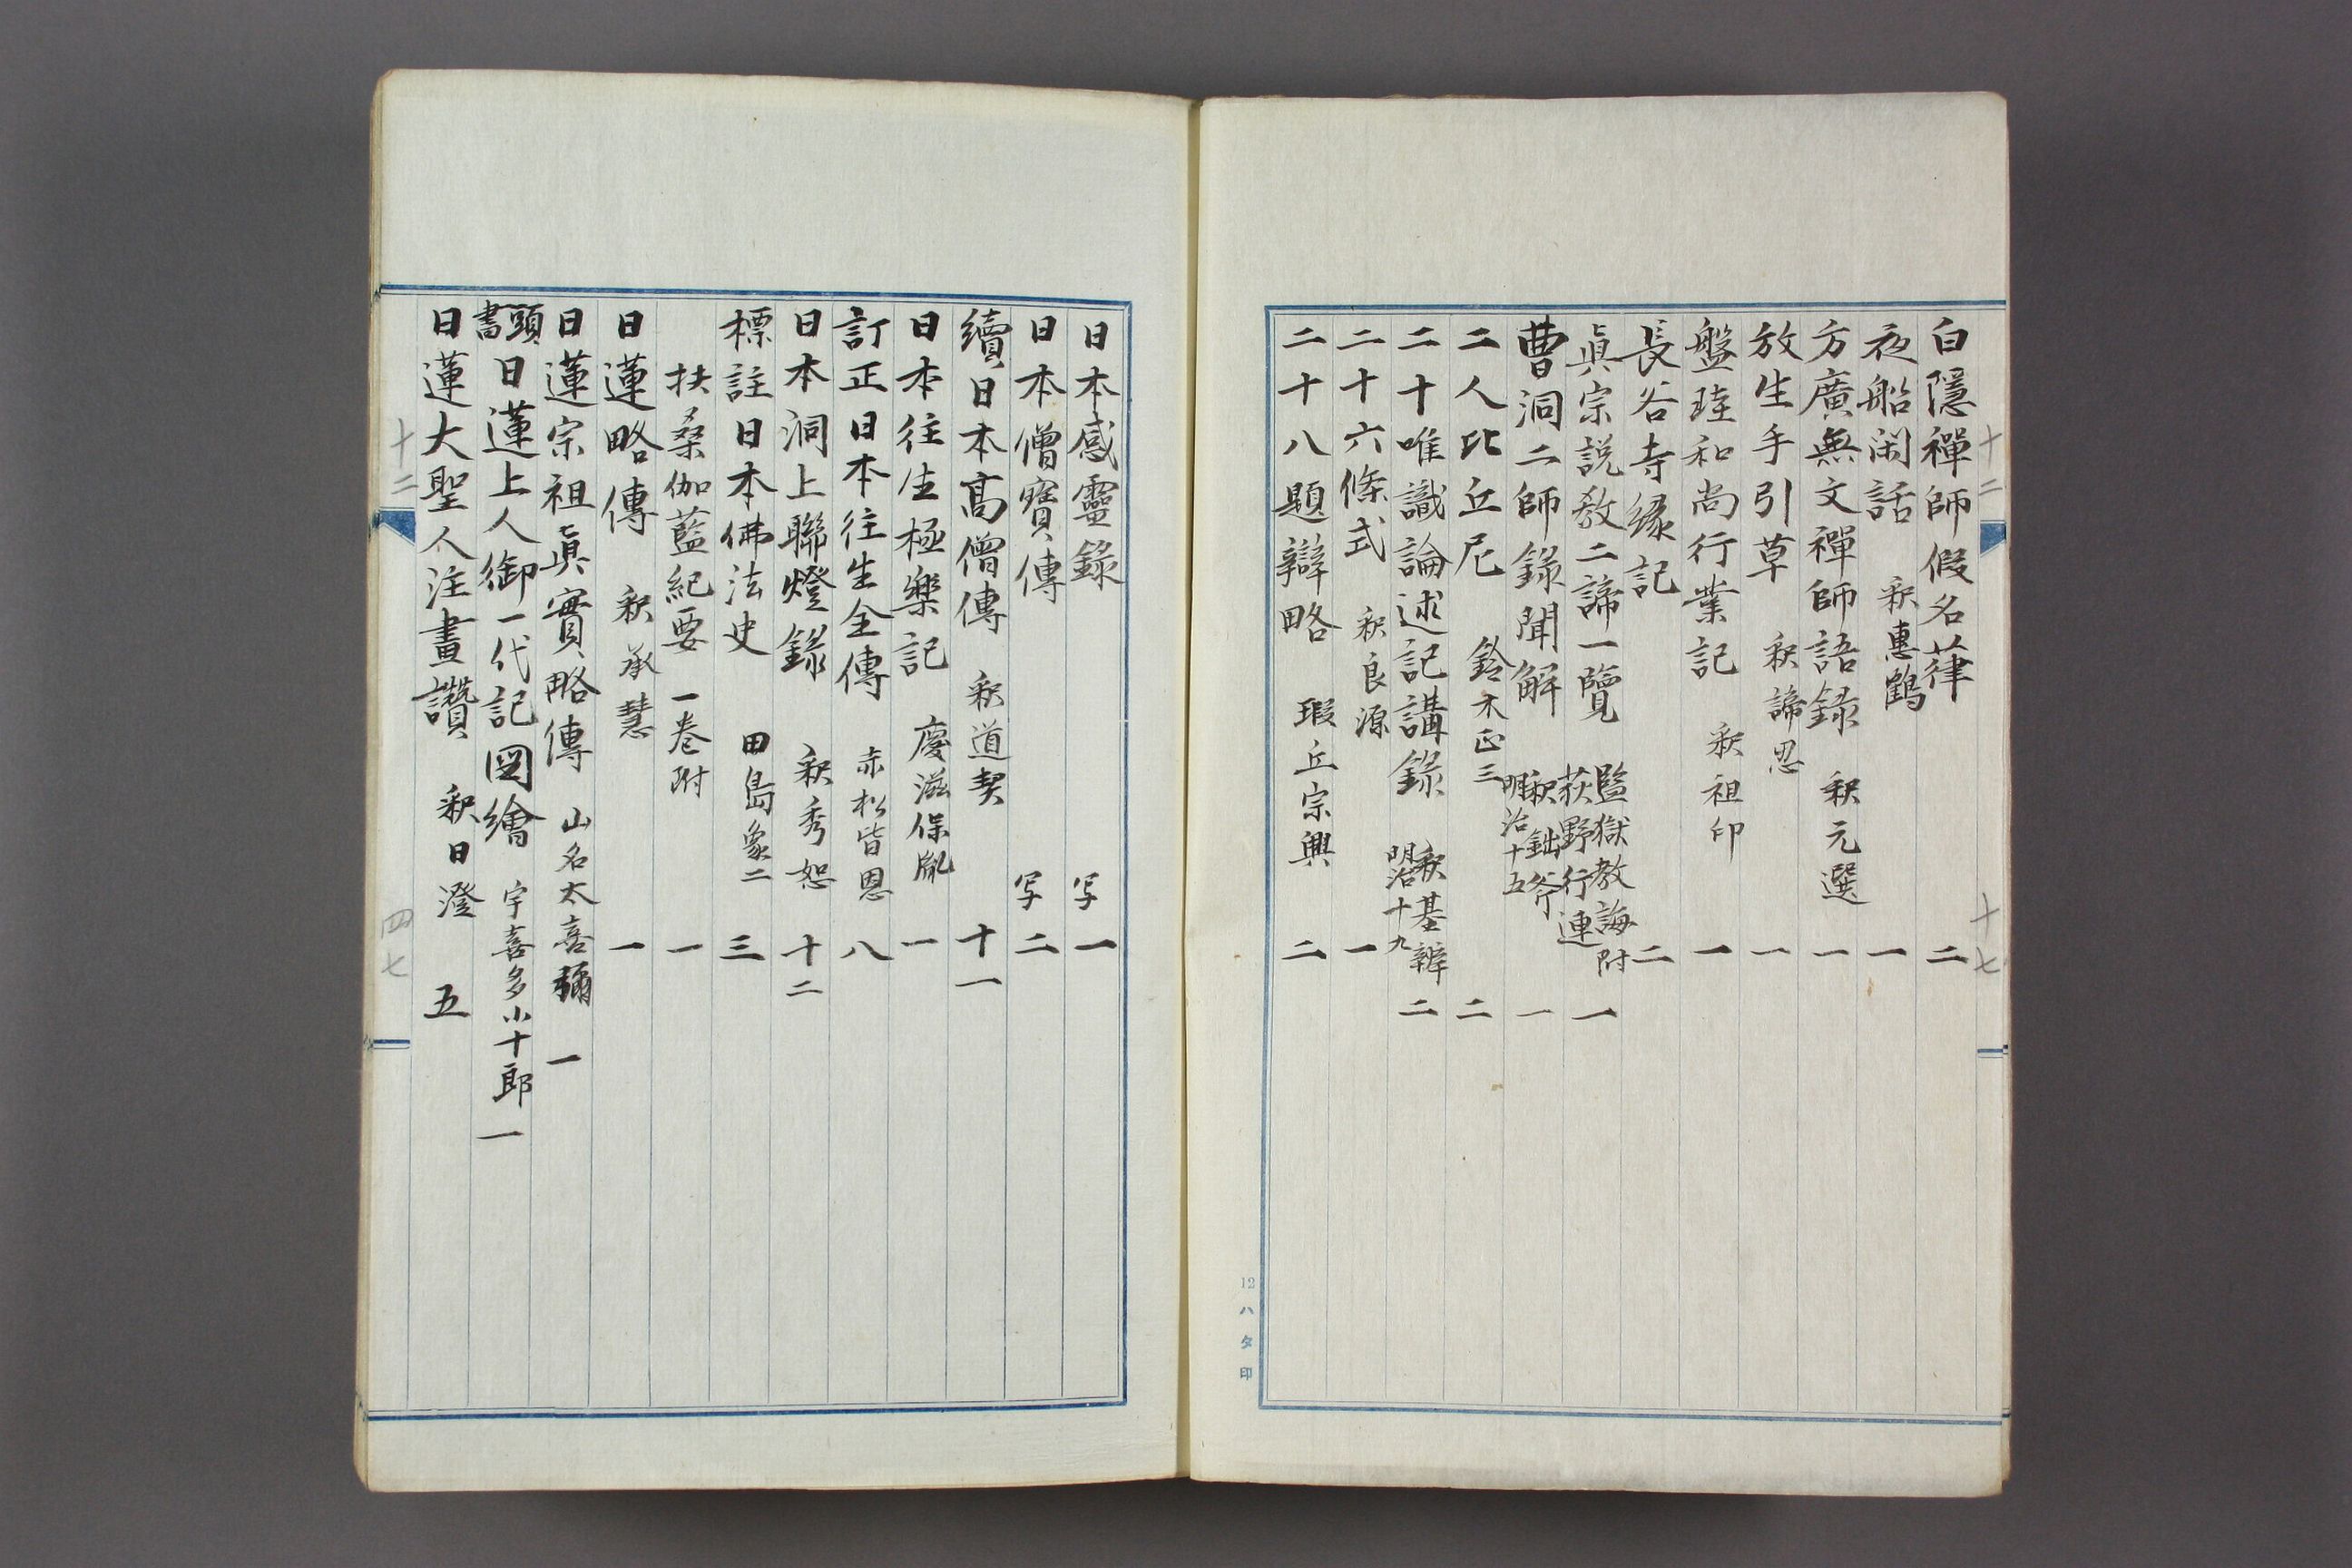 十二
十七
白隱禪師假名葎 二
夜船閑話 釈惠鶴 一
方廣無文禪師語録 釈元選 一
放生手引草 釈諦忍 一
盤珪和尚行業記 釈祖印 一
長谷寺縁記 二
眞宗説教二諦一覽 監獄教誨附 荻野行連 一
曹洞二師錄聞解 釈鈯斧 明治十五 一
二人比丘尼 鈴木正三 二
二十唯識論述記講錄 釈基辨 明治十九 二
二十六條式 釈良源 一
二十八題辯略 瑕丘宗興 二
12ハタ印
日本感靈錄 写 一
日本僧寶傳 写 二
續日本高僧傳 釈道契 十一
日本往生極樂記 慶滋保胤 一
訂正日本往生全傳 赤松皆恩 八
日本洞上聯燈錄 釈秀恕 十二
標註日本佛法史 田島象二 三
扶桑伽藍紀要 一卷附 一
日蓮略傳 釈承慧 一
日蓮宗祖眞實略傳 山名太喜彌 一
頭書日蓮上人御一代記図繪 宇喜多小十郎 一
日蓮大聖人注畫讚 釈日澄 五
十二
四七